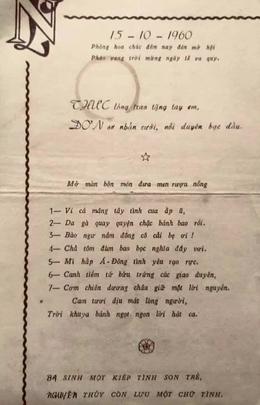 N
15 - 10 - 1960
Phòng hoa chúc đêm nay đèn mở hội
Pháo vang trời mừng ngày tế vu quy.
THỰC lòng trao tặng tay em,
ĐƠN sơ nhẫn cưới, nối duyên bạc đầu.
Mở màn bốn món đưa men rượu nồng
1— Vi cá măng tây tình cua ấp ủ,
2— Da gà quay quyện chặc bánh bao rồi.
3— Bào ngư nấm đông cô cải bẹ ơi !
4— Chả tôm đùm bao bọc nghĩa đầy vơi.
5— Mì hấp Á-Đông tình yêu rạo rực.
6— Canh tiềm tứ bửu trứng cúc giao duyên,
7— Cơm chiên dương châu giữ một lời nguyền.
Cam tươi dịu mát lòng người,
Trời khuya bánh ngọt ngon lời hát ca.
BA SINH MỘT KIẾP TÌNH SON TRẺ,
NGUYÊN THỦY CÒN LƯU MỘT CHỮ TÌNH.